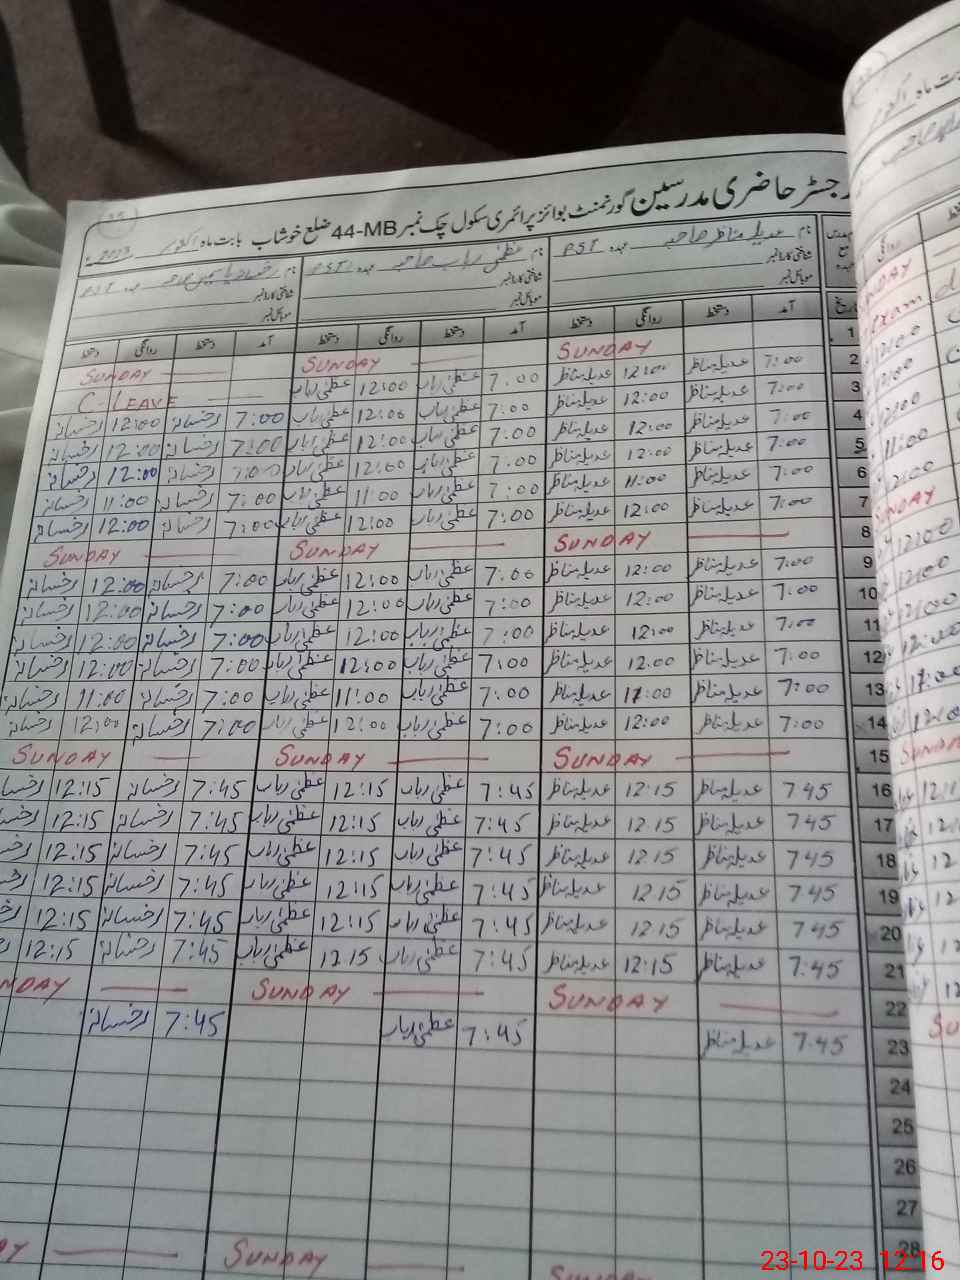 رجسٹر حاضری مدرسین گورنمنٹ بوائز پرائمری سکول چک نمبر 44-MB ضلع خوشاب بابت ماہ اکتوبر 2023ء
نام عدیلہ مناظر صاحبہ عہدہ PST نام عظمیٰ رباب صاحبہ عہدہ PST نام رخسانہ یاسمین صاحبہ عہدہ PST
شناختی کارڈ نمبر شناختی کارڈ نمبر شناختی کارڈ نمبر
موبائل نمبر موبائل نمبر موبائل نمبر
تاریخ آمد دستخط روانگی دستخط آمد دستخط روانگی دستخط آمد دستخط روانگی دستخط
1 SUNDAY SUNDAY SUNDAY
2 7:00 عدیلہ مناظر 12:00 عدیلہ مناظر 7:00 عظمیٰ رباب 12:00 عظمیٰ رباب C-LEAVE
3 7:00 عدیلہ مناظر 12:00 عدیلہ مناظر 7:00 عظمیٰ رباب 12:00 عظمیٰ رباب 7:00 رخسانہ 12:00 رخسانہ
4 7:00 عدیلہ مناظر 12:00 عدیلہ مناظر 7:00 عظمیٰ رباب 12:00 عظمیٰ رباب 7:00 رخسانہ 12:00 رخسانہ
5 7:00 عدیلہ مناظر 12:00 عدیلہ مناظر 7:00 عظمیٰ رباب 12:00 عظمیٰ رباب 7:00 رخسانہ 12:00 رخسانہ
6 7:00 عدیلہ مناظر 11:00 عدیلہ مناظر 7:00 عظمیٰ رباب 11:00 عظمیٰ رباب 7:00 رخسانہ 11:00 رخسانہ
7 7:00 عدیلہ مناظر 12:00 عدیلہ مناظر 7:00 عظمیٰ رباب 12:00 عظمیٰ رباب 7:00 رخسانہ 12:00 رخسانہ
8 SUNDAY SUNDAY SUNDAY
9 7:00 عدیلہ مناظر 12:00 عدیلہ مناظر 7:00 عظمیٰ رباب 12:00 عظمیٰ رباب 7:00 رخسانہ 12:00 رخسانہ
10 7:00 عدیلہ مناظر 12:00 عدیلہ مناظر 7:00 عظمیٰ رباب 12:00 عظمیٰ رباب 7:00 رخسانہ 12:00 رخسانہ
11 7:00 عدیلہ مناظر 12:00 عدیلہ مناظر 7:00 عظمیٰ رباب 12:00 عظمیٰ رباب 7:00 رخسانہ 12:00 رخسانہ
12 7:00 عدیلہ مناظر 12:00 عدیلہ مناظر 7:00 عظمیٰ رباب 12:00 عظمیٰ رباب 7:00 رخسانہ 12:00 رخسانہ
13 7:00 عدیلہ مناظر 11:00 عدیلہ مناظر 7:00 عظمیٰ رباب 11:00 عظمیٰ رباب 7:00 رخسانہ 11:00 رخسانہ
14 7:00 عدیلہ مناظر 12:00 عدیلہ مناظر 7:00 عظمیٰ رباب 12:00 عظمیٰ رباب 7:00 رخسانہ 12:00 رخسانہ
15 SUNDAY SUNDAY SUNDAY
16 7:45 عدیلہ مناظر 12:15 عدیلہ مناظر 7:45 عظمیٰ رباب 12:15 عظمیٰ رباب 7:45 رخسانہ 12:15
17 7:45 عدیلہ مناظر 12:15 عدیلہ مناظر 7:45 عظمیٰ رباب 12:15 عظمیٰ رباب 7:45 رخسانہ 12:15
18 7:45 عدیلہ مناظر 12:15 عدیلہ مناظر 7:45 عظمیٰ رباب 12:15 عظمیٰ رباب 7:45 رخسانہ 12:15
19 7:45 عدیلہ مناظر 12:15 عدیلہ مناظر 7:45 عظمیٰ رباب 12:15 عظمیٰ رباب 7:45 رخسانہ 12:15
20 7:45 عدیلہ مناظر 12:15 عدیلہ مناظر 7:45 عظمیٰ رباب 12:15 عظمیٰ رباب 7:45 رخسانہ 12:15
21 7:45 عدیلہ مناظر 12:15 عدیلہ مناظر 7:45 عظمیٰ رباب 12:15 عظمیٰ رباب 7:45 رخسانہ 12:15
22 SUNDAY SUNDAY NDAY
23 7:45 عدیلہ مناظر 7:45 عظمیٰ رباب 7:45 رخسانہ
24
25
26
27
28
SUNDAY SUNDAY
23-10-23 12:16